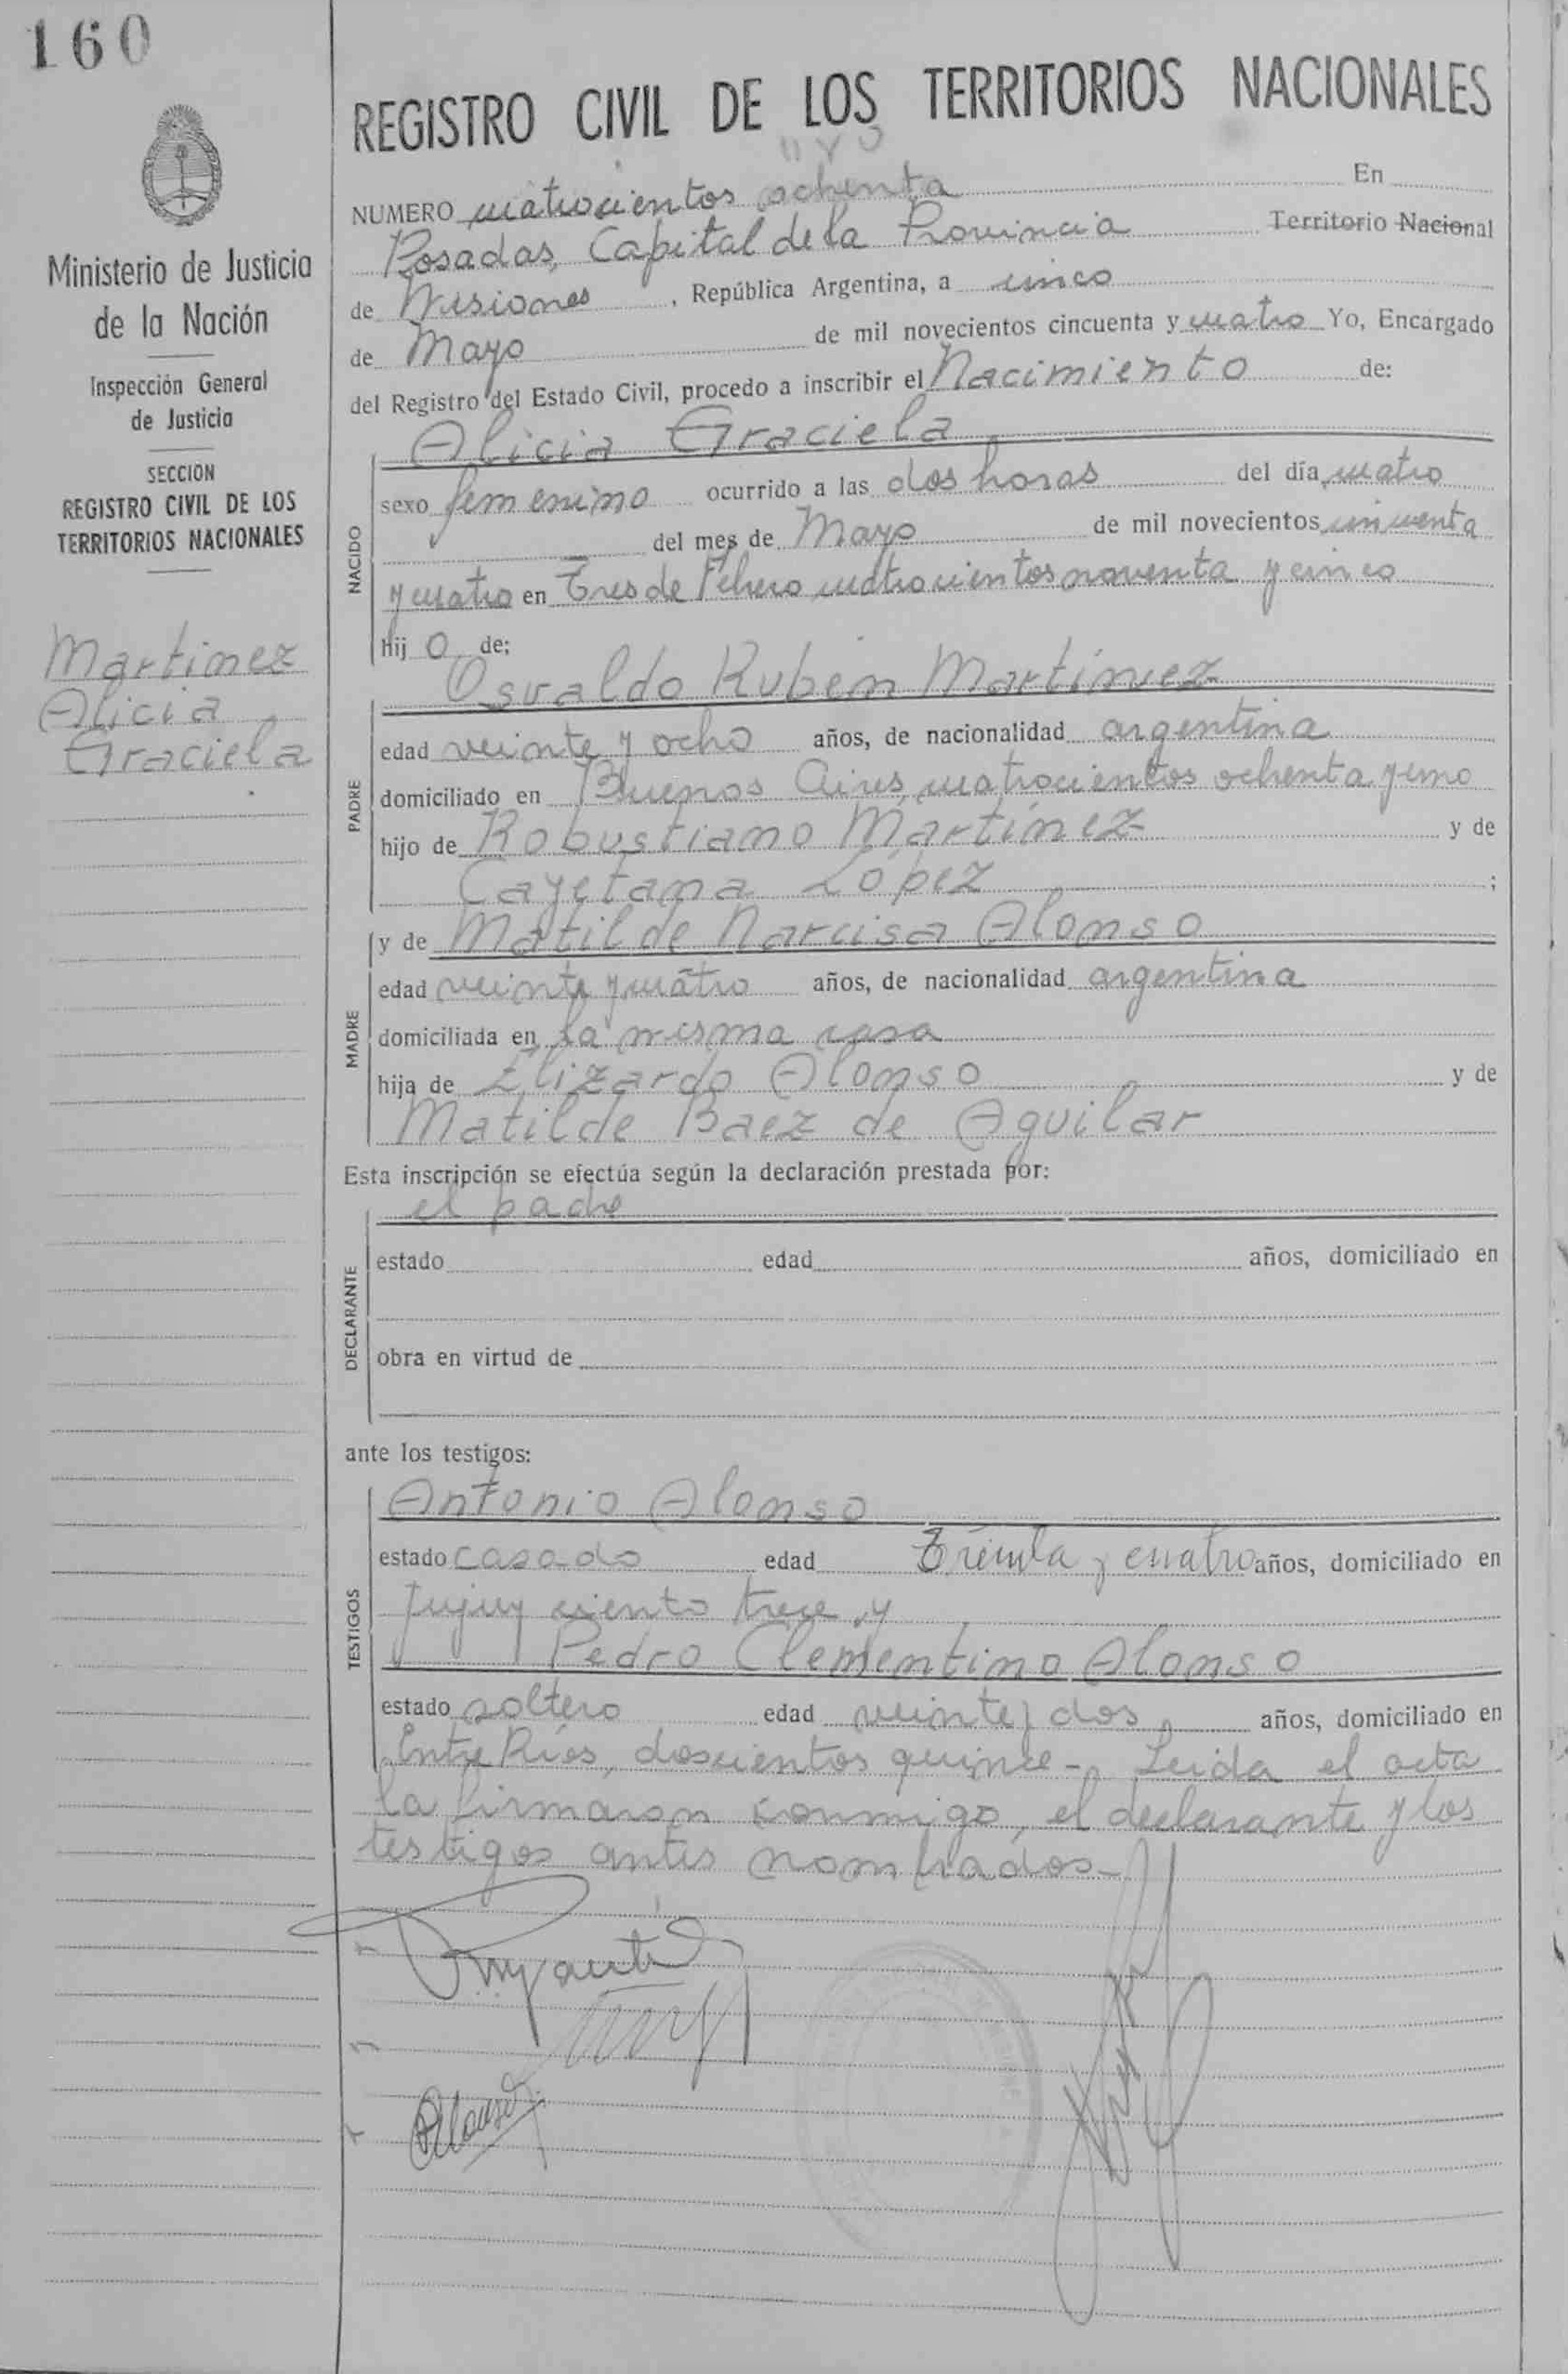 160
REGISTRO CIVIL DE LOS TERRITORIOS NACIONALES
NUMERO cuatrocientos ochenta En
Posadas, Capital de la Provincia Territorio Nacional
de Misiones, República Argentina, a cinco
de Mayo de mil novecientos cincuenta y cuatro Yo, Encargado
del Registro del Estado Civil, procedo a inscribir el Nacimiento de:
Alicia Graciela
NACIDO
sexo femenino ocurrido a las dos horas del día cuatro
del mes de Mayo de mil novecientos cincuenta
y cuatro en Tres de Febrero cuatrocientos noventa y cinco
hij o de:
Osvaldo Rubén Martínez
PADRE
edad veinte y ocho años, de nacionalidad argentina
domiciliado en Buenos Aires, cuatrocientos ochenta y uno
hijo de Robustiano Martínez y de
Cayetana López ;
MADRE
y de Matilde Narcisa Alonso
edad veinte y cuatro años, de nacionalidad argentina
domiciliada en la misma casa
hija de Elizardo Alonso y de
Matilde Baez de Aguilar
Esta inscripción se efectúa según la declaración prestada por:
el padre
DECLARANTE
estado edad años, domiciliado en
obra en virtud de
ante los testigos:
TESTIGOS
Antonio Alonso
estado casado edad Treinta y cuatro años, domiciliado en
Jujuy ciento trece y
Pedro Clementino Alonso
estado soltero edad veinte y dos años, domiciliado en
Entre Ríos, doscientos quince - Leida el acta
la firmaron conmigo, el declarante y los
testigos antes nombrados -
PAlonso
Ministerio de Justicia
de la Nación
Inspección General
de Justicia
SECCION
REGISTRO CIVIL DE LOS
TERRITORIOS NACIONALES
Martinez
Alicia
Graciela